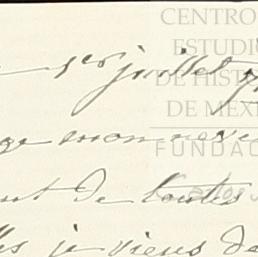 CENTRO
ESTUDI
DE HIST
DE MÉX
FUNDAC
1er juillet
mon neve
de toutes
je viens de